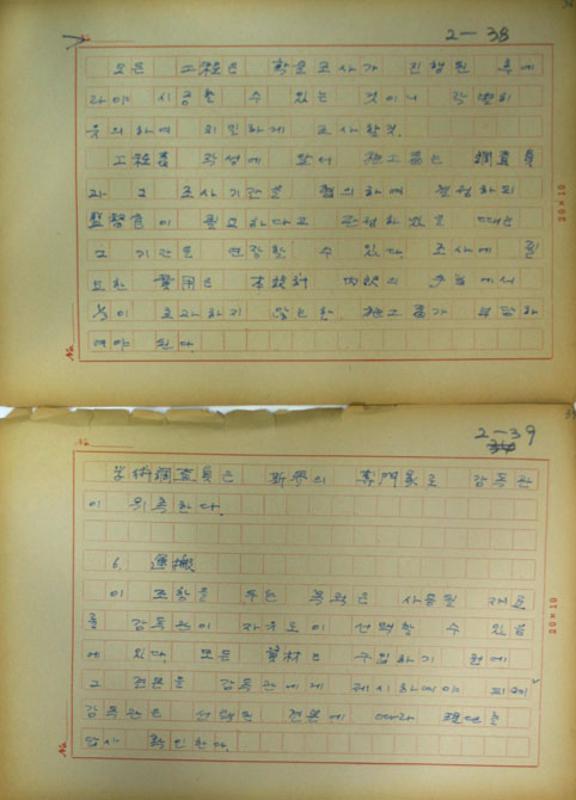 2-38
모든 工程은 학술조사가 진행된 후에
라야 시공할 수 있는 것이니 각별히
유의하여 치밀하게 조사할것.
工程表 작성에 앞서 施工者는 調査員
과 그 조사기간을 협의하여 결정하되
監督官이 필요하다고 인정하였을 때는
그 기간을 연장할 수 있다. 조사에 필
요한 費用은 本設計 内訳의
이 초과하지 않는한 施工者가 부담하
여야 한다.
No.
20×10
2-39
学術調査員은 斯界의 専門家로 감독관
이 위촉한다.
6. 運搬
이 조항을 두는 목적은 사용될 재료
를 감독관이 자유로이 선택할 수 있음
에 있다. 모든 資材는 구입하기 전에
그 견본을 감독관에게 제시하여야 되며
감독관은 선택된 견본에 따라 현장을
답사 확인한다.
No.
20×10